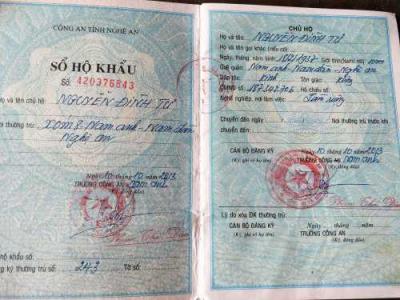 CÔNG AN TỈNH NGHỆ AN
SỔ HỘ KHẨU
Số: 420376843
Họ và tên chủ hộ: NGUYỄN ĐÌNH TƯ
thường trú: xóm 8 - Nam anh - Nam đàn
Nghệ an
10 tháng 10 năm 2013
TRƯỞNG CÔNG AN Nam anh
hộ khẩu số:
ký thường trú số: 243 Tờ số:
CHỦ HỘ
Họ và tên: NGUYỄN ĐÌNH TƯ
Họ và tên gọi khác (nếu có):
Ngày, tháng, năm sinh: 1937 Giới tính: nam
Quê quán: Nam anh - Nam đàn - Nghệ an
Dân tộc: Kinh
CMND số: Hộ chiếu số:
Nghề nghiệp, nơi làm việc: Làm ruộng
Chuyển đến
CÁN BỘ ĐĂNG KÝ
(Ký, ghi rõ họ tên)
Ngày 10 tháng 10 năm 2013
TRƯỞNG CÔNG AN Nam anh
Lý do xóa ĐK thường trú:
CÁN BỘ ĐĂNG KÝ
(Ký, ghi rõ họ tên)
Ngày tháng năm
TRƯỞNG CÔNG AN
(Ký, đóng dấu)